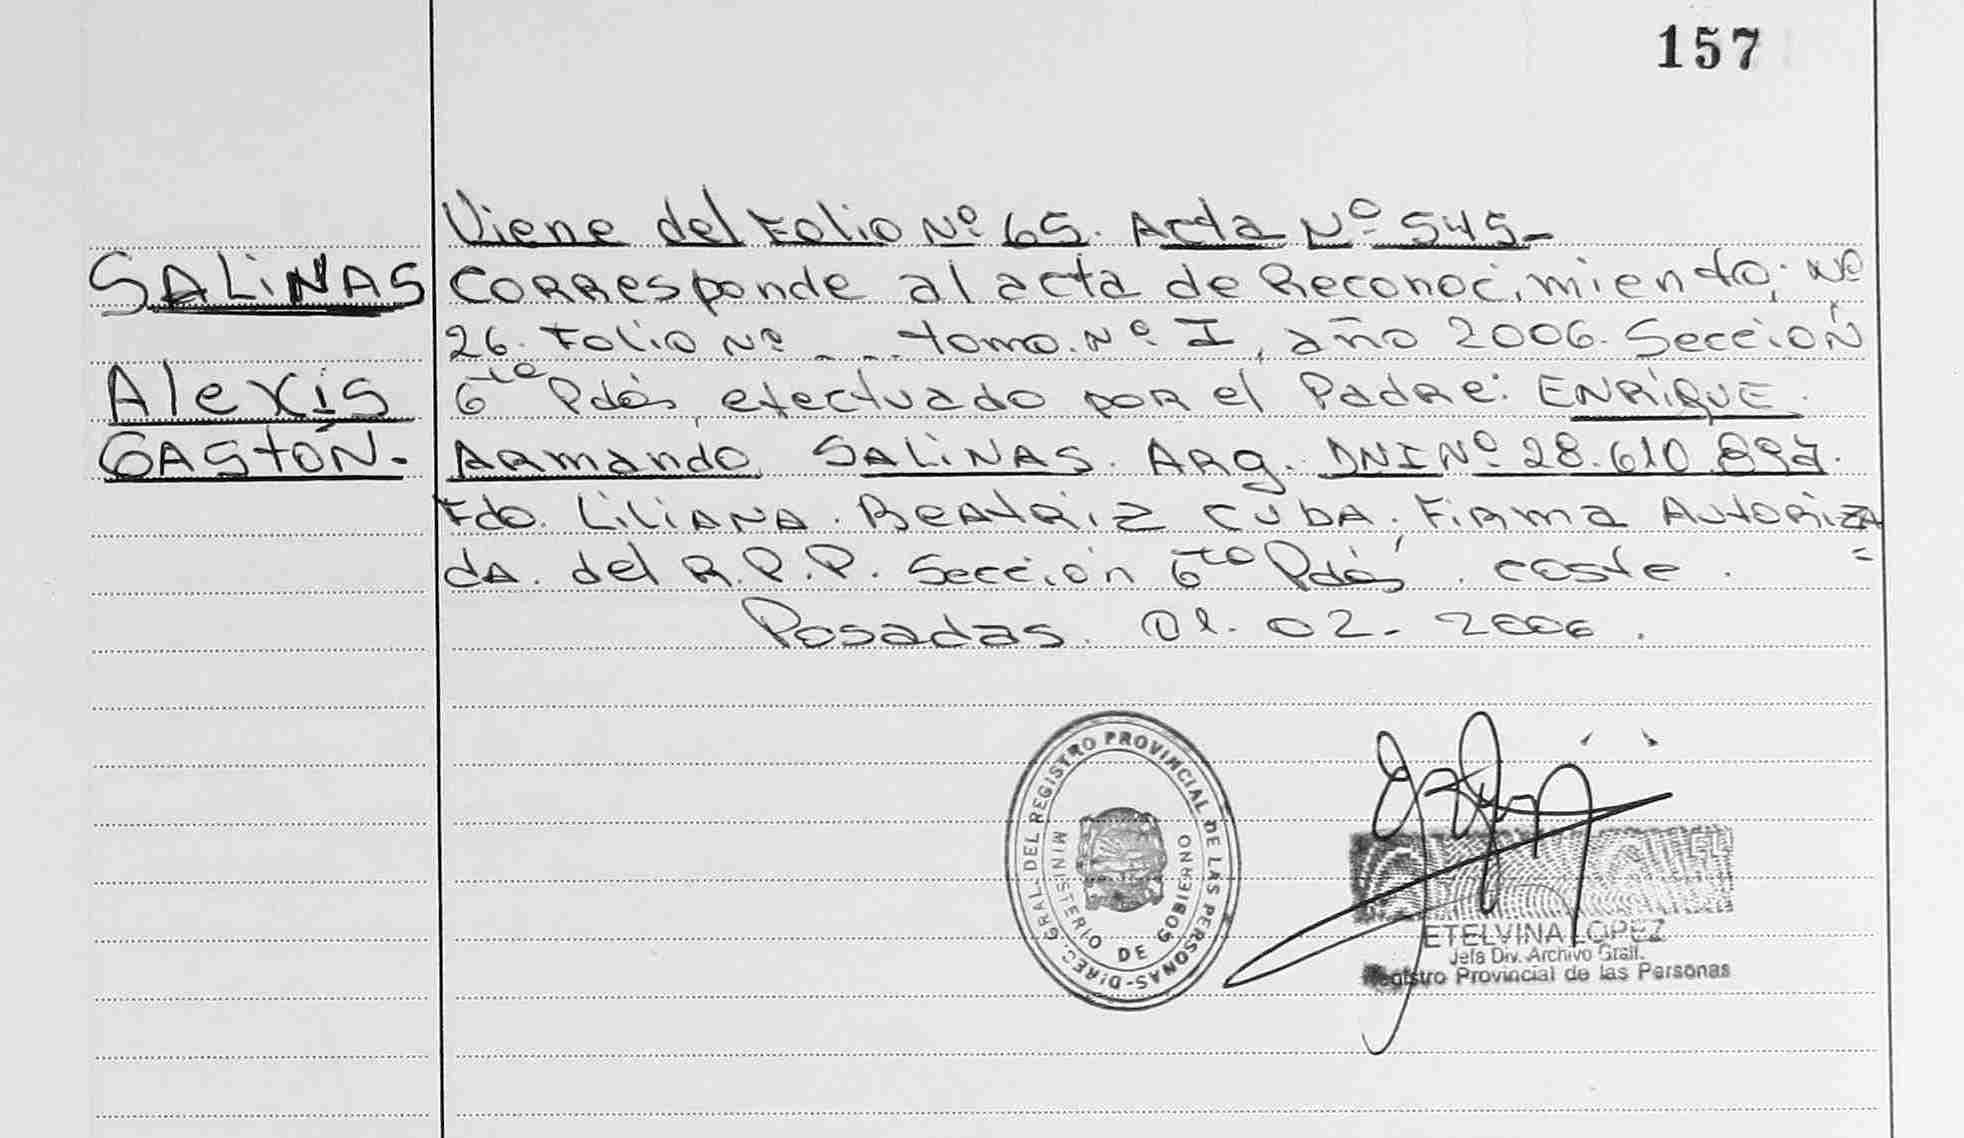 157
Viene del Folio Nº 65. Acta Nº 545-
SALiNAS
Corresponde al acta de Reconocimiento; Nº
26. Folio Nº ... tomo. Nº I, año 2006. Sección
Alexis
6ta Pdás, efectuado por el Padre: ENRiQUE.
GAStóN.-
Armando SALiNAS. Arg. DNI Nº 28.610.897.
Fdo. LiliANA. BeAtRiz CubA. Firma Autoriza
da. del R.P.P. Sección 6ta Pdás. coste. =
Posadas. 01. 02- 2006.
DIREC. GRAL. DEL REGISTRO PROVINCIAL DE LAS PERSONAS-
MINISTERIO DE GOBIERNO
ETELVINA LOPEZ
Jefa Div. Archivo Gral.
Registro Provincial de las Personas